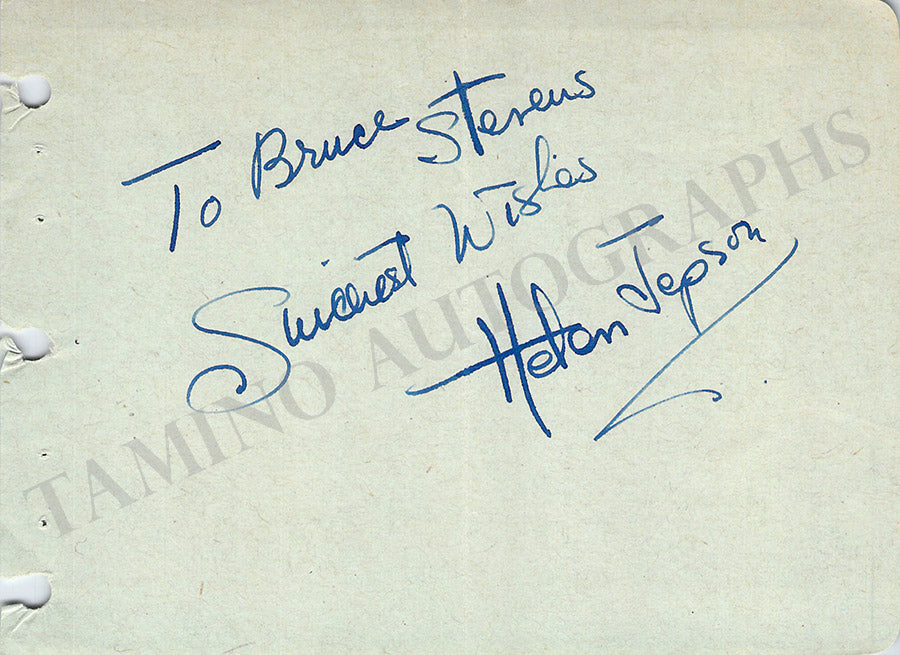 To Bruce Stevens
Sincerest Wishes
Helen Jepson
TAMINO AUTOGRAPHS